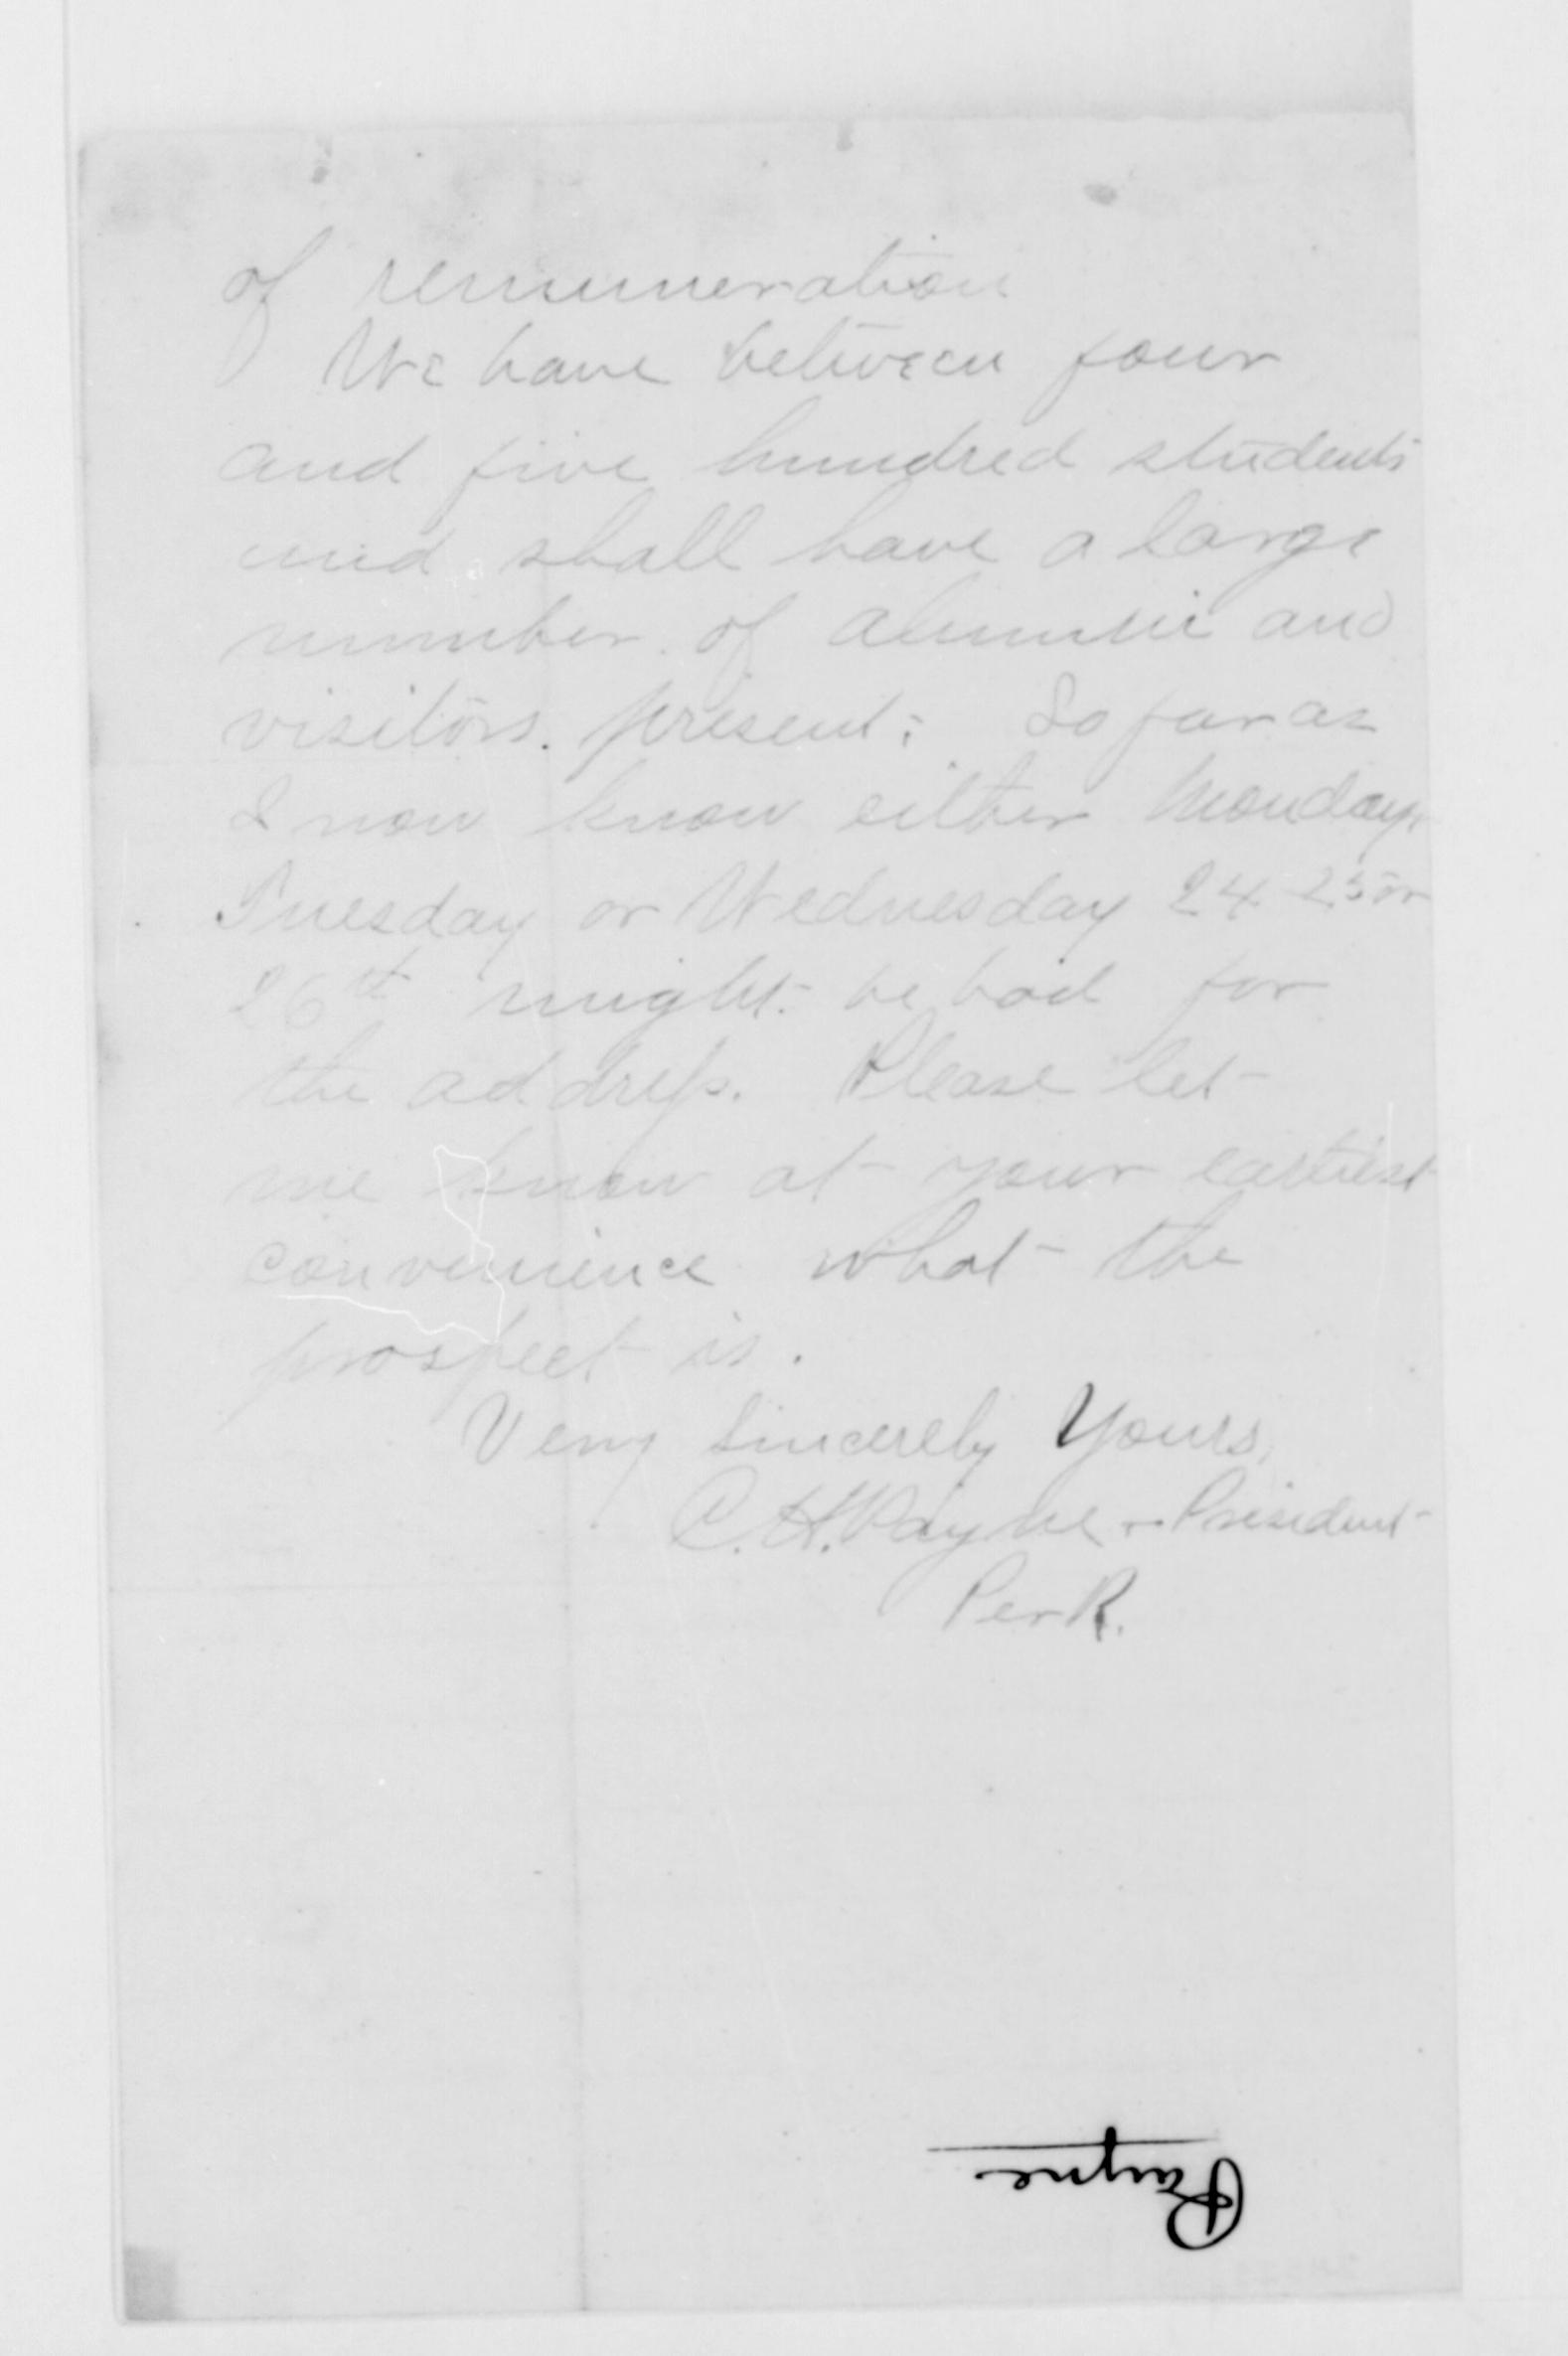 of remuneration
We have between four
and five hundred students
and shall have a large
number of alumni and
visitors. present; So far as
I now know either Monday,
Tuesday or Wednesday 24 25 or
26th might be had for
the address. Please let
me know at your earliest
convenience what the
prospect is.
Very Sincerely Yours,
C. H. Payne - President
Per R.
Payne